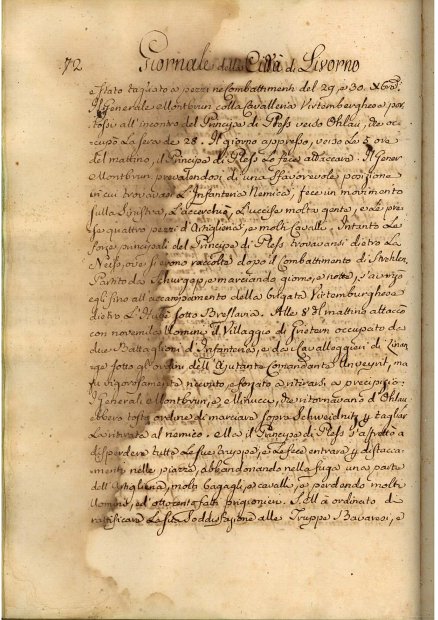 72 Giornale della Città di Livorno
e stato tagliato a pezzi ne Combattimenti del 29 e 30. Xbre.
Il Generale Montbrun colla Cavalleria Virtemberghese por,
tossi all'incontro del Principe di Pless verso Ohlau, che oc,
cupò la sera de 28. Il giorno appresso, verso le 5 ore
del mattino, il Principe di Pless lo fece attaccare. Il Gener
Montbrun, prevalendosi di una sfavorevole posizione
in cui trovavasi l'Infanteria Nemica, fece un movimento
sulla Sinistra, l'accerchiò, l'uccise molta gente, e le pre
se quattro pezzi di Artiglieria, e molti Cavalli. Intanto le
forze principali del Principe di Pless trovavansi dietro la
Neiss, ove si erono raccolte dopo il Combattimento di Strehlen
Partito da Schurgast, e marciando giorno, e notte, s'avanzò
egli fino all'accampamento della brigata Virtemberghese
dietro sotto Breslavia. Alle 8 di mattino attaccò
con novemila Uomini il Villaggio di Grietern occupato da
due Battaglioni d'Infanteria, e da Cavalleggieri di Linan,
ge sotto gli ordini dell'Ajutante Comandante Duveyrit, ma
fu vigorosamente ricevuto e forzato a ritirarsi a precipizio:
I Generali Montbrun, e Minucci, che ritornavano d'Ohlau
ebbero tosto ordine di marciare sopra Schweidnitz p tagliar
la ritirata al nemico. Ma il Principe di Pless s'affrettò a
disperdere tutte le sue truppe, e le fece entrare p distacca,
menti nelle piazze, abbandonando nella fuga una parte
dell'Artiglieria, molti bagagli, e cavalli, e perdendo molti
Uomini, ed ottocento fatti prigionieri. S.M. à ordinato di
testificare la sua Soddisfazione alle Truppe Bavaresi, e